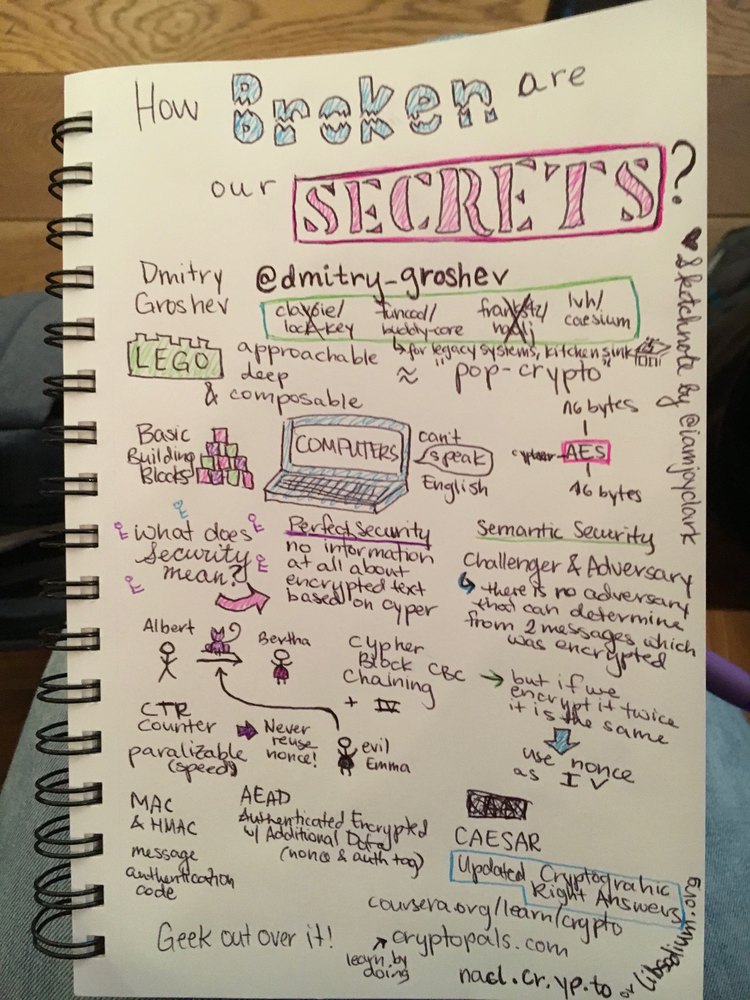 How Broken are
our SECRETS?
Dmitry
Groshev
@dmitry_groshev
lock-key
funcool/
buddy-core
lvh/
caesium
↳ for legacy systems, kitchen sink
LEGO
approachable
deep
& composable
≈ "pop-crypto"
Basic
Building
Blocks
COMPUTERS
can't
speak
English
16 bytes
AES
16 bytes
what does
security
mean?
Perfect security
no information
at all about
encrypted text
based on cyper
Semantic Security
Challenger & Adversary
there is no adversary
that can determine
from 2 messages which
was encrypted
Albert
Bertha
evil
Emma
Cypher
Block CBC
Chaining
+ IV
but if we
encrypt it twice
it is the same
use nonce
as IV
CTR
Counter
paralizable
(speed)
Never
reuse
nonce!
MAC
& HMAC
message
authentication
code
AEAD
Authenticated Encrypted
w/ Additional Data
(nonce & auth tag)
CAESAR
Updated Cryptograhic
Right Answers
coursera.org/learn/crypto
Geek out over it!
cryptopals.com
learn by
doing
nacl.cr.yp.to
or libsodium.org
♥ Sketchnote by @iamjoyclark